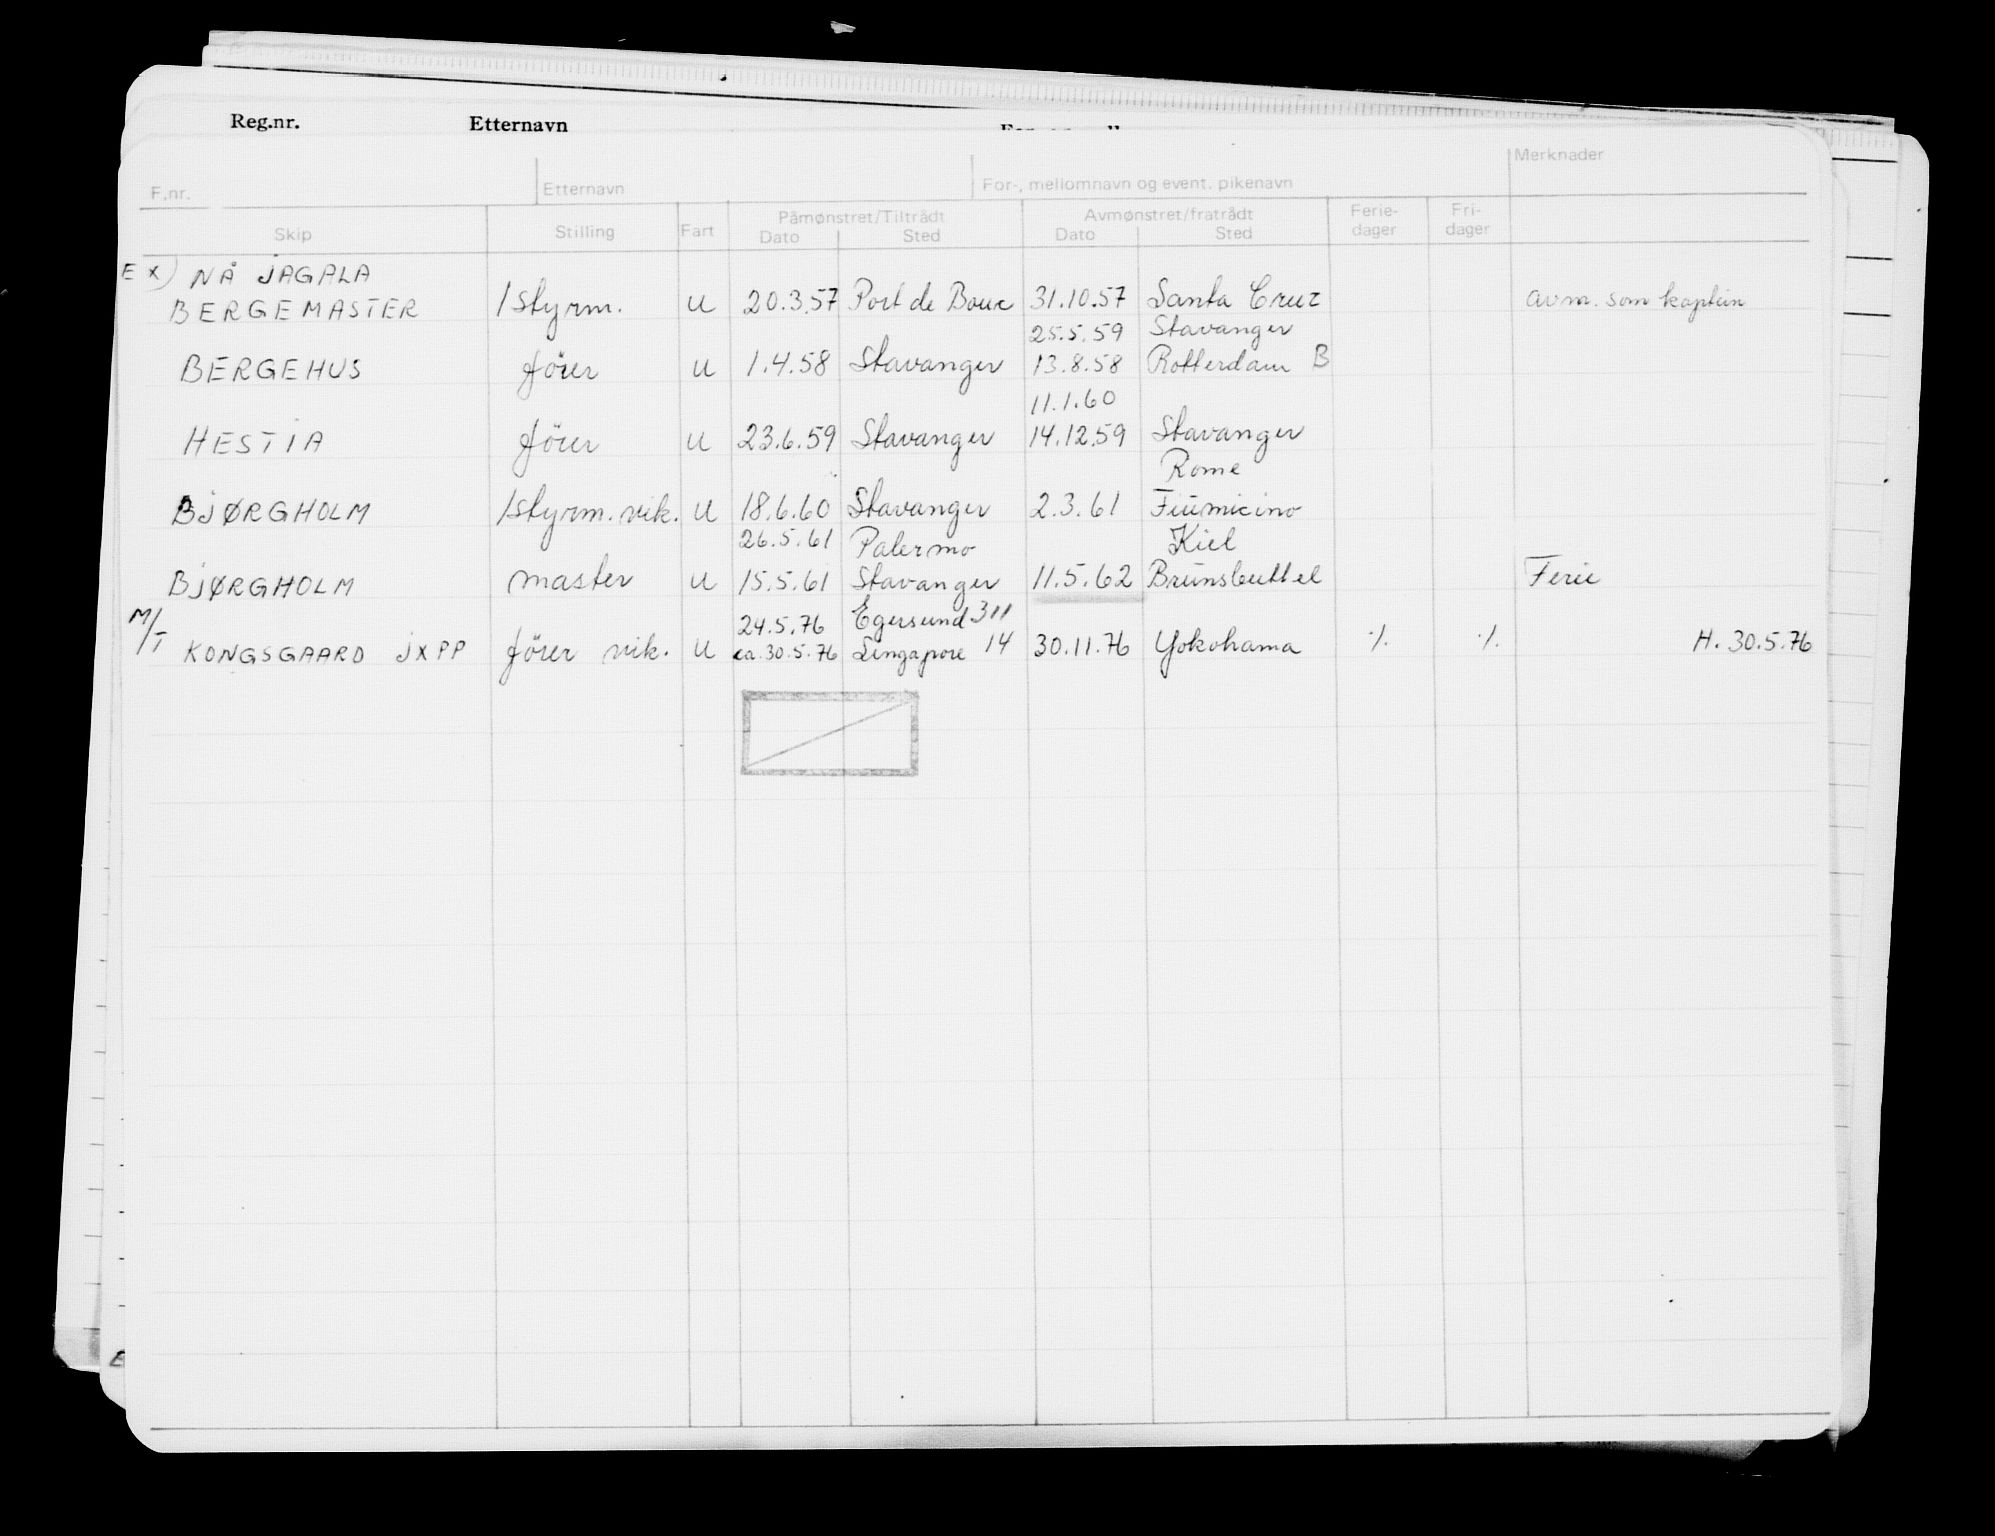 Reg.nr. Etternavn
Merknader
F.nr. Etternavn For-, mellomnavn og event. pikenavn
Skip Stilling Fart Påmønstret/Tiltrådt Avmønstret/fratrådt Ferie- Fri-
Dato Sted Dato Sted dager dager
EX) NÅ JAGALA
BERGEMASTER 1styrm. U 20.3.57 Port de Bouc 31.10.57 Santa Cruz avm. som kaptein
25.5.59 Stavanger
BERGEHUS fører U 1.4.58 Stavanger 13.8.58 Rotterdam B
11.1.60
HESTIA fører U 23.6.59 Stavanger 14.12.59 Stavanger
Rome
BJØRGHOLM 1styrm. vik. U 18.6.60 Stavanger 2.3.61 Fiumicino
26.5.61 Palermo Kiel
BJØRGHOLM master U 15.5.61 Stavanger 11.5.62 Brunsbuttel Ferie
M/T 24.5.76 Egersund 311
KONGSGAARD JXPP fører vik. U ca. 30.5.76 Singapore 14 30.11.76 Yokohama ·/. ·/. H. 30.5.76